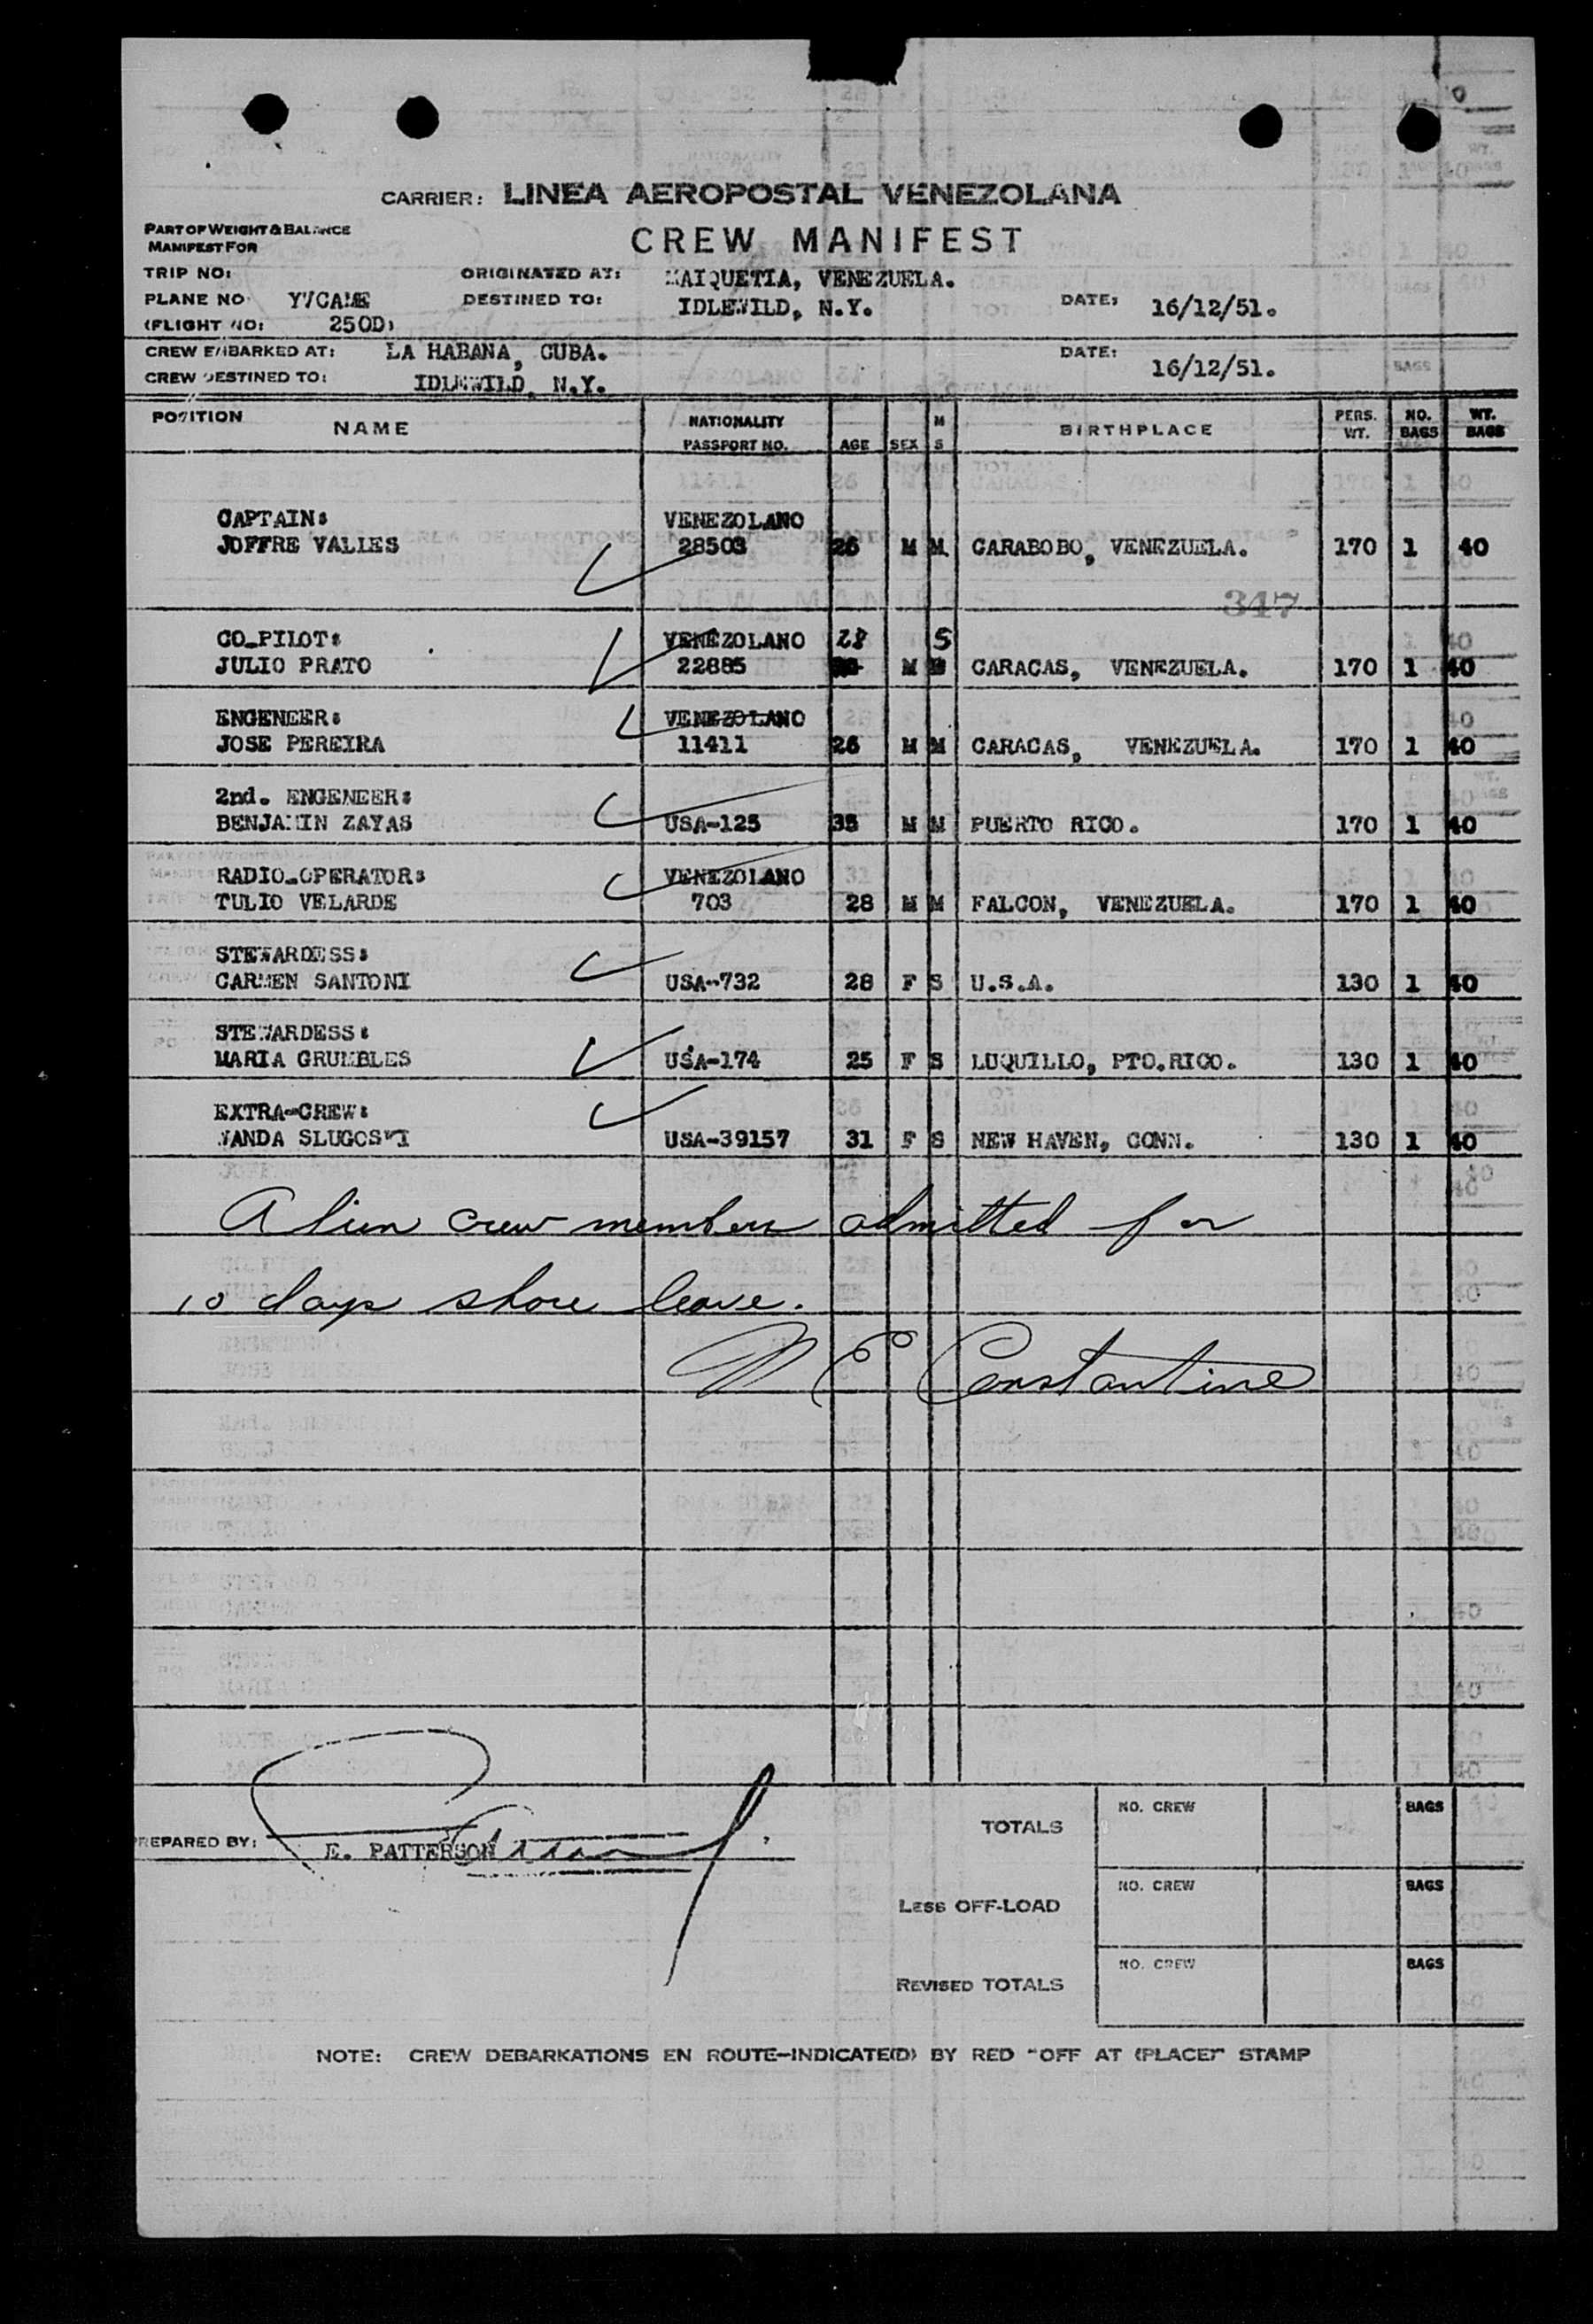 CARRIER: LINEA AEROPOSTAL VENEZOLANA
PART OF WEIGHT & BALANCE
MANIFEST FOR
CREW MANIFEST
TRIP NO: ORIGINATED AT: MAIQUETIA, VENEZUELA.
PLANE NO YVCAME DESTINED TO: IDLEWILD, N.Y. DATE: 16/12/51.
(FLIGHT NO: 250D)
CREW EMBARKED AT: LA HABANA, CUBA. DATE: 16/12/51.
CREW DESTINED TO: IDLEWILD, N.Y.
POSITION NAME NATIONALITY PASSPORT NO. AGE SEX M S BIRTHPLACE PERS. WT. NO. BAGS WT. BAGS
CAPTAIN: VENEZOLANO
JOFFRE VALLES 28503 26 M M. CARABOBO, VENEZUELA. 170 1 40
347
CO_PILOT: VENEZOLANO 28 S
JULIO PRATO 22885 M M CARACAS, VENEZUELA. 170 1 40
ENGENEER: VENEZOLANO
JOSE PEREIRA 11411 26 M M CARACAS, VENEZUELA. 170 1 40
2nd. ENGENEER:
BENJAMIN ZAYAS USA-125 35 M M PUERTO RICO. 170 1 40
RADIO_OPERATOR: VENEZOLANO
TULIO VELARDE 703 28 M M FALCON, VENEZUELA. 170 1 40
STEWARDESS:
CARMEN SANTONI USA-732 28 F S U.S.A. 130 1 40
STEWARDESS:
MARIA GRUMBLES USA-174 25 F S LUQUILLO, PTO.RICO. 130 1 40
EXTRA-CREW:
WANDA SLUGOSKI USA-39157 31 F S NEW HAVEN, CONN. 130 1 40
Alien crew members admitted for
10 days shore leave.
N E Constantine
TOTALS NO. CREW BAGS
PREPARED BY: E. PATTERSON
LESS OFF-LOAD NO. CREW BAGS
REVISED TOTALS NO. CREW BAGS
NOTE: CREW DEBARKATIONS EN ROUTE-INDICATE(D) BY RED "OFF AT (PLACE)" STAMP